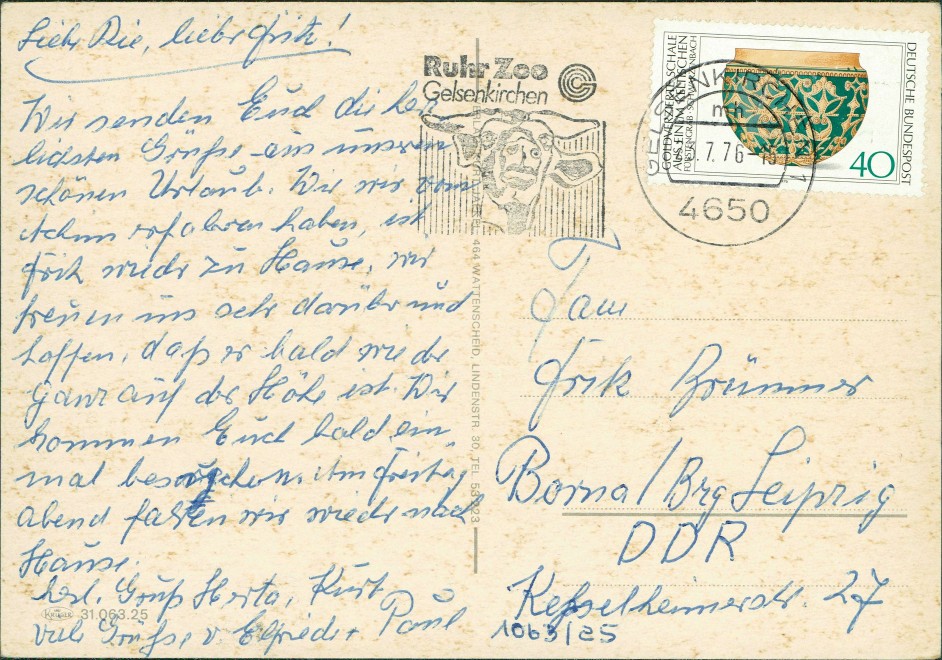 Liebe Rie, lieber Fritz!
Wir senden Euch die herz
lichsten Grüße aus unserem
schönen Urlaub. Wie wir von
erfahren haben, ist
Fritz wieder zu Hause, wir
freuen uns sehr darüber und
hoffen, daß er bald wieder
ganz auf der Höhe ist. Wir
kommen Euch bald ein
mal besuchen. Am Freitag
abend fahren wir wieder nach
Hause.
herzl. Gruß Herta, Kurt
viele Grüße v Elfriede + Paul
Krüger 31.063.25
Ruhr Zoo
Gelsenkirchen
464 WATTENSCHEID, LINDENSTR. 30, TEL.
GELSENKIRCHEN 1
mh
.7.76-18
4650
GOLDVERZIERTE SCHALE
AUS EINEM KELTISCHEN
FÜRSTENGRAB · SCHWARZENBACH
DEUTSCHE BUNDESPOST
40
Fam
Fritz Brümmer
Borna / Bzg Leipzig
DDR
Kesselheimerstr. 27
1063/25